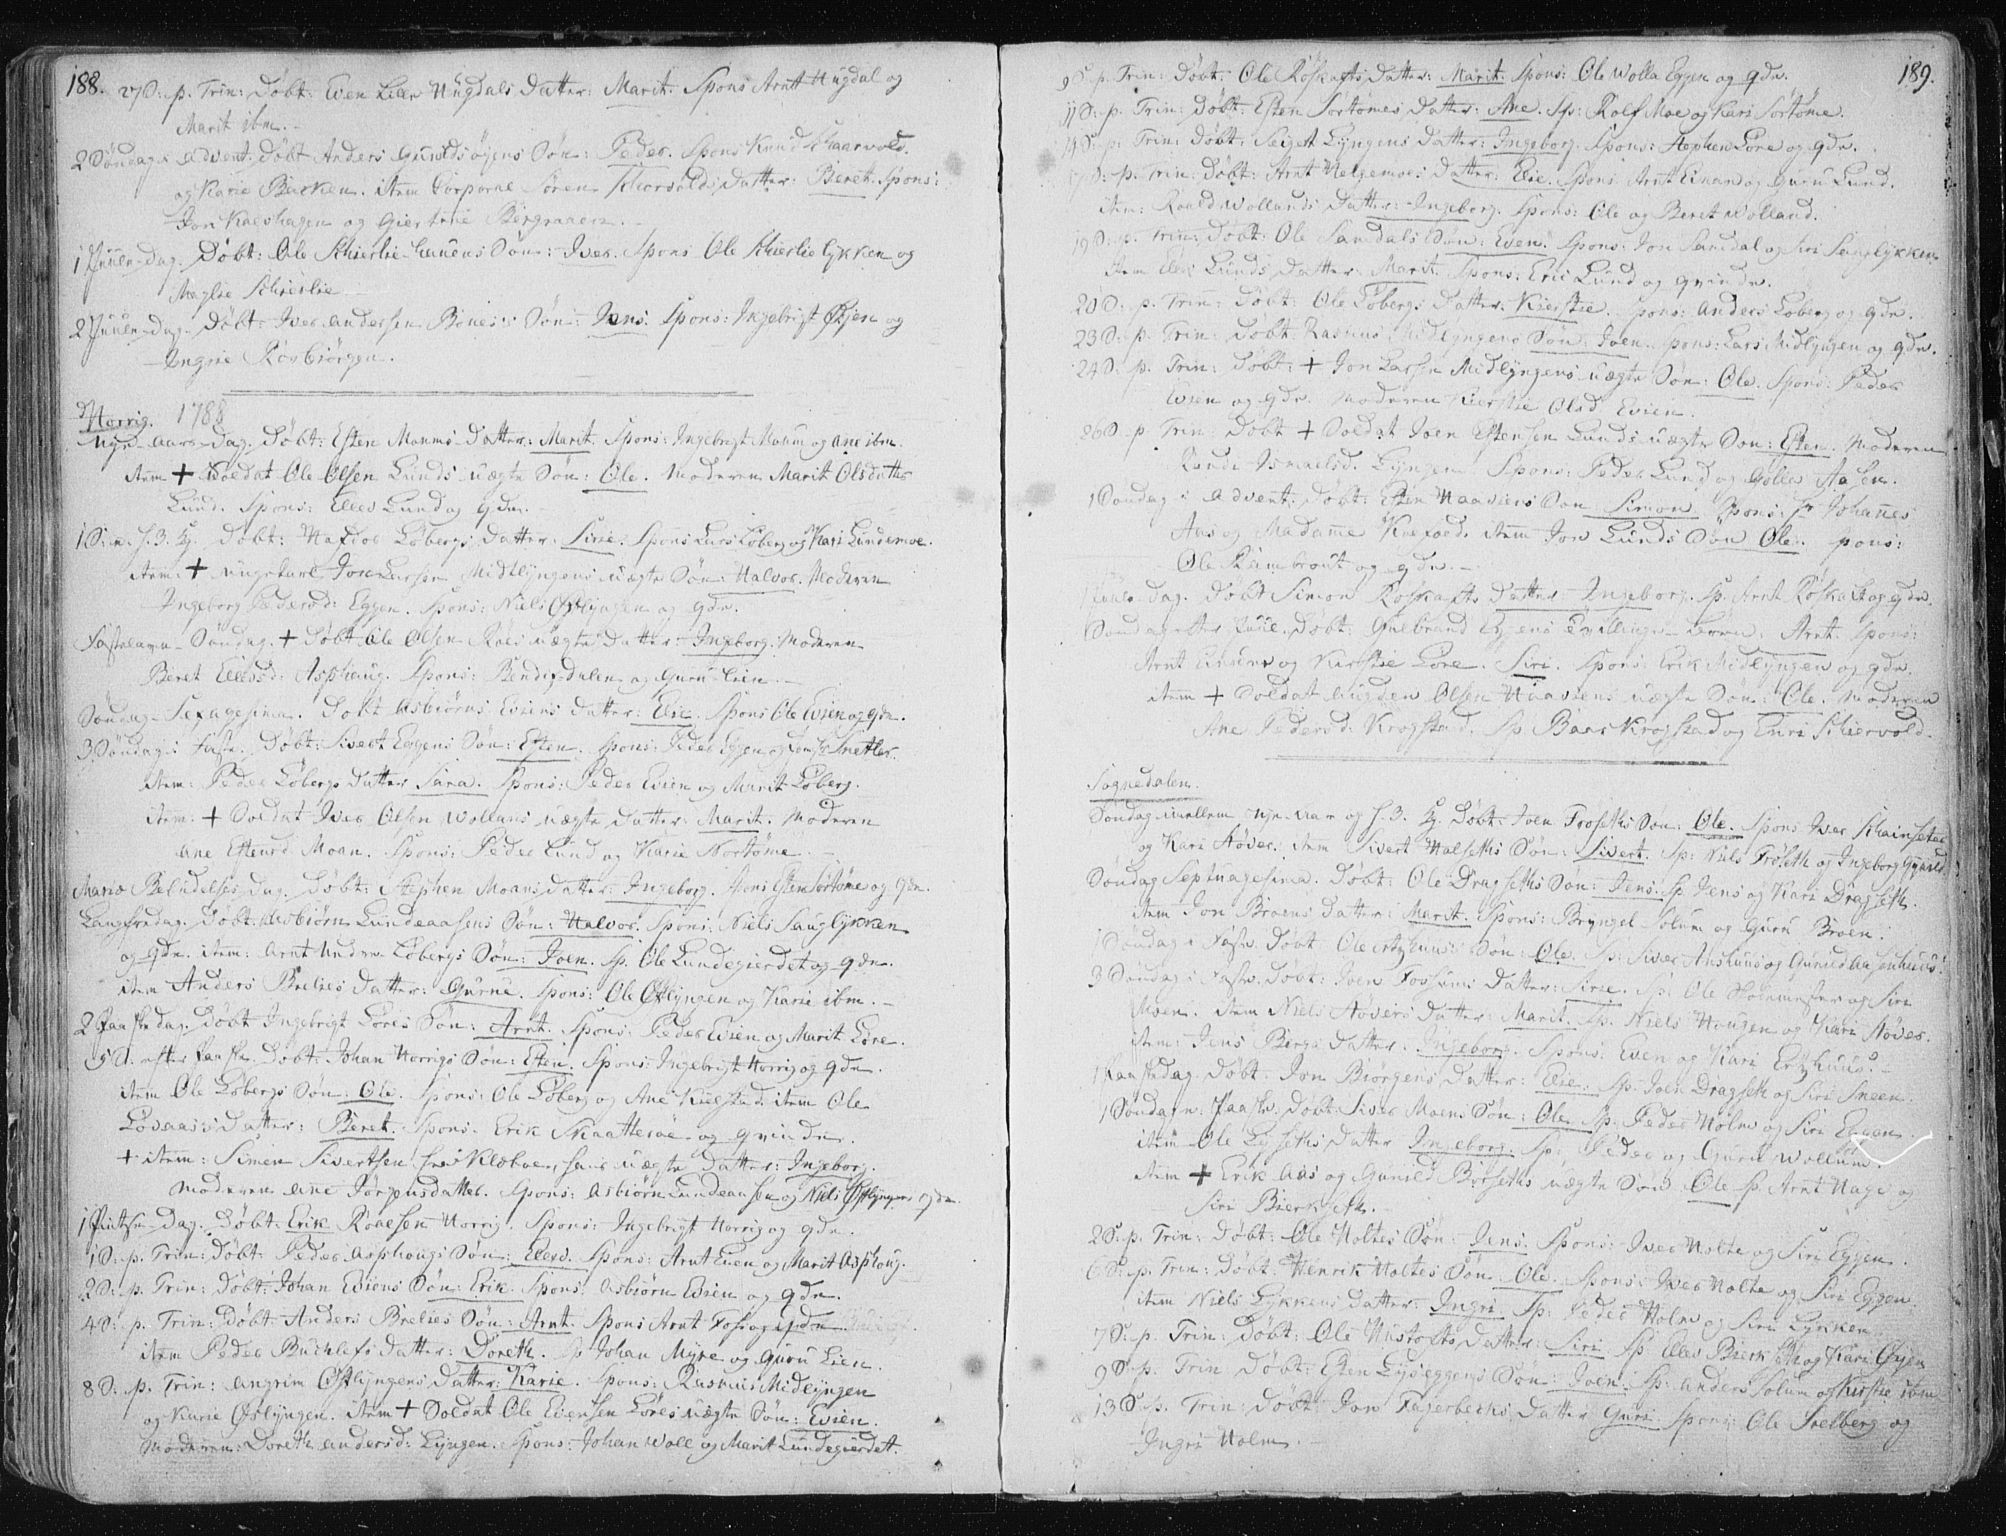 188. 27 S: p. Trin: Døbt: Even Hugdals Datter: Marit. Spons Arnt Hugdal og
Marit ibm.
2 Søndag i Advent. Døbt Anders Søn: Peder. Spons Knud
og Karie Backen. item Corporal Søren Datter: Beret. Spons:
Jon og Giertrue
1 Juule-Dag. Døbt: Ole Søn: Iver. Spons Ole og
2 Juule-Dag. Døbt: Iver Andersen Søn: Jens. Spons: Ingebrigt Øyen og
Ingrie
Horrig. 1788
Nye-Aars-Dag. Døbt: Esten Datter: Marit. Spons: Ingebrigt og Ane ibm.
item + Soldat Ole Olsen Lunds uægte Søn: Ole. Moderen Marit Olsdatter
Lund. Spons: Eller Lund og qdr.
1 S: p. H. 3. K. Døbt: Løbergs Datter: Sirie. Spons Lars Løberg og Kari Lundemoe.
item: + Ungekarl Jon Larsen Midtlyngens uægte Søn: Halvor. Moderen
Ingeborg Pedersd: Eggen. Spons: Niels Østlyngen og qdr.
Fastelavn-Søndag. + Døbt Ole Olsen uægte Datter: Ingeborg. Moderen
Beret Ellevsd: Asphaug. Spons: og Guru Lien.
Søndag Sexagesima. Døbt Asbiørns Eviens Datter: Elie. Spons Ole Evien og qdr.
3 Søndag i Faste. Døbt: Sivert Eggens Søn: Esten. Spons: Peder Eggen og
item: Peder Løbergs Datter Sara. Spons: Peder Evien og Marit Løberg.
item: + Soldat Iver Olsen Wollans uægte Datter: Marit. Moderen
Ane Moan. Spons: Peder Lund og Karie Nortøme.
Mariæ Bebudelses Dag. Døbt: Stephen Moans Datter: Ingeborg. Spons Esten Sørtøme og qdr.
Langfredag. Døbt: Asbiørn Lundeaasens Søn: Halvor. Spons: Niels Sauglykken
og qdr. item: Arnt Løbergs Søn: Joen. Sp. Ole Lundegierdet og qdr.
item Anders Brelies Datter: Gurue. Spons: Ole Østlyngen og Karie ibm.
2 Paaske dag. Døbt Ingebrigt Løres Søn: Arnt. Spons: Peder Evien og Marit Løre.
5 S. efter Paaske. Døbt: Johan Horrigs Søn: Esten. Spons: Ingebrigt Horrig og qdr.
item Ole Løbergs Søn: Ole. Spons: Ole Løberg og Ane item Ole
Løvaass Datter: Beret. Spons. Erik Skaatterøe og qvinde.
+ item: Simen Sivertsen fra Klæboe, hans uægte Datter: Ingeborg.
Moderen Ane Jørgensdatter. Spons: Asbiørn Lundeaasen og Niels Østlyngens qdr.
1 Pintse-Dag. Døbt: Erik Roaesen Horrig. Spons: Ingebrigt Horrig og qdr.
1 S: p. Trin: Døbt: Peder Asphougs Søn: Ellev. Spons: Arnt Evien og Marit Asphoug.
2 S: p. Trin: Døbt: Johan Eviens Søn: Erik. Spons: Asbiørn Evien og qdr.
4 S: p. Trin: Døbt: Anders Brelies Søn: Arnt. Spons Arnt Foss og qdr
item Peder Datter: Doreth. Sp Johan Myre og Guru Lien.
8 S: p. Trin: Angrim Østlyngens Datter: Karie. Spons: Rasmus Midlyngen
og Karie Østlyngen. item + Soldat Ole Evensen Løres uægte Søn: Evien.
Moderen: Doreth Andersd: Lyngen. Spons: Johan Woll og Marit Lundegierdet.
189.
9 S. p. Trin: Døbt: Ole Røskafts Datter: Marit. Spons: Ole Wolla Eggen og qdr.
11 S: p. Trin: Døbt: Esten Sørtømes Datter: Ane. Sp: Rolf Moe og Kari Sørtøme.
14 S: p. Trin: Døbt: Lyngens Datter: Ingeborg. Spons: Stephen Løre og qdr.
p. Trin: Døbt: Arnt Helgemoes Datter: Elie. Spons Arnt og Guru Lund.
item: Roald Wollands Datter: Ingeborg. Spons: Ole og Beret Wolland.
19 S: p. Trin: Døbt: Ole Samdals Søn: Even. Spons: Jon Samdal og Siri Sauglykken.
item Lunds Datter: Marit. Spons: Eric Lund og qvinde.
20 S: p. Trin: Døbt: Ole Løbergs Datter: Kierstie. Spons: Anders Løberg og qdr.
23 S: p. Trin: Døbt: Rasmus Midlyngens Søn: Joen. Spons: Lars Midlyngen og qdr.
24 S: p. Trin: Døbt: + Jon Larsen Midlyngens uægte Søn: Ole. Spons: Peder
Evien og qdr. Moderen Kierstie Olsd Evien.
26 S: p. Trin Døbt + Soldat Joen Estensen Lunds uægte Søn: Esten. Moderen
Ismaelsd. Lyngen Spons: Peder Lund og Aasen.
1 Søndag i Advent: Døbt: Esten Haaviens Søn Simon. Spons: Hr Johannes
Aas og Madame item Jon Lunds Søn Ole. Spons:
Ole og qdr.
Juule-Dag. Døbt Simon Røskafts Datter Ingeborg. Sp: Arnt Røskaft og qdr.
Søndag efter Juul. Døbt: Gulbrand Eggens Tvillinge-Børn: Arnt. Spons:
Arnt og Kirstie Løre. Siri. Spons: Erik Midlyngen og qdr.
item + Soldat Olsen Haaviens uægte Søn: Ole. Moderen
Ane Pedersd: Krogstad. Sp. Baar Krogstad og
Sognedalen.
Søndag imellem Nye-Aar og H. 3. K. Døbt: Joen Froseths Søn: Ole. Spons Iver
og Kari Støver. item Sivert Halseths Søn: Sivert. Sp: Niels Frøseth og Ingeborg
Søndag Septuagesima. Døbt: Ole Dragseths Søn: Jens. Sp. Jens og Kari Dragseth.
item Jon Broens Datter: Marit. Spons: Bryngel Solum og Guru Broen.
1 Søndag i Faste. Døbt Ole Søn: Ole. Sp: Siver og Gunild
3 Søndag i Faste. Døbt: Iver Fossums Datter: Sirie. Sp: Ole og Siri
Moen. item Niels Støvers Datter: Marit. Sp. Niels Haugen og Kari Støver.
item: Jens Datter: Ingeborg. Spons: Even og Kari
1 Paaskedag Døbt: Jon Biørgens Datter: Elie. Sp: Joen Dragseth og Siri Sneen.
1 Søndag p: Paaske. Døbt: Siver Moens Søn: Ole. Sp. Peder Holm og Siri Eggen.
item Ole Datter Ingeborg. Sp: Peder og Guru Wollum.
item + Erik Aas og Gunild Børseths uægte Søn Ole Sp. Arnt Hage og
Siri Bierkseth.
2 S. p. Trin: Døbt: Ole Holtes Søn: Jens. Spons: Iver Holte og Siri Eggen.
6 S: p. Trin: Døbt: Henrik Holtes Søn Ole. Spons: Iver Holte og Siri Eggen.
item Niels Lykkens Datter: Ingri. Sp: Peder Holm og Siri Lykken.
7 S: p. Trin: Døbt: Ole Datter: Siri Sp: Eller Bierkseth og Kari Øyen.
9 S: p. Trin Døbt: Esten Søn: Joen. Sp: Anders Solum og Kirstie ibm
13 S: p. Trin: Døbt: Jon Fagerbecks Datter Guri. Spons: Ole og
Ingri Holm.